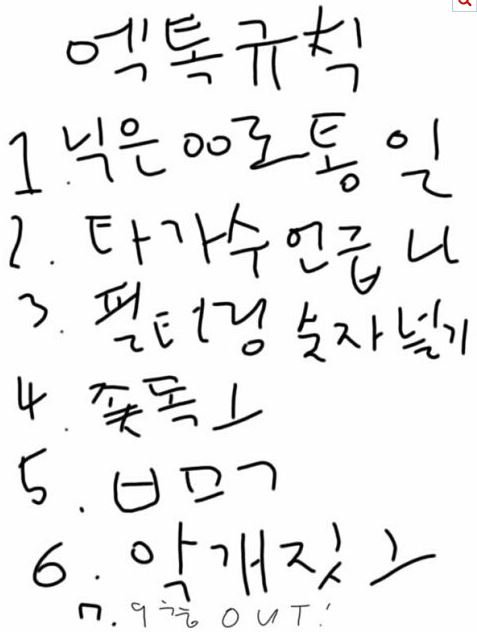 엑톡규칙
1. 닉은 00로통일
2. 타가수언급 ㄴ
3. 필터링 숫자넣기
4. 쫒톡ㅗ
5. ㅂㅁㄱ
6. 악개짓ㅗ
7. 9층 OUT!